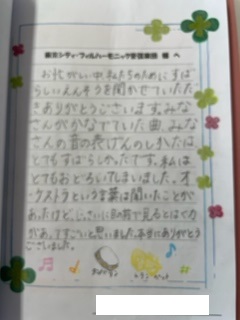 東京シティ・フィルハーモニック管弦楽団 様 へ
お忙しい中私たちのために すば
らしいえんそうを聞かせていただ
きありがとうございます。みな
さんがかなでていた曲、みな
さんの音の表げんのしかたは
とてもすばらしかったです。私は
とてもおどろいてしまいました。オー
ケストラという言葉は聞いたことが
あったけど、じっさいに目の前で見るとはく力
があってすごいと思いました。本当にありがとう
ございました。